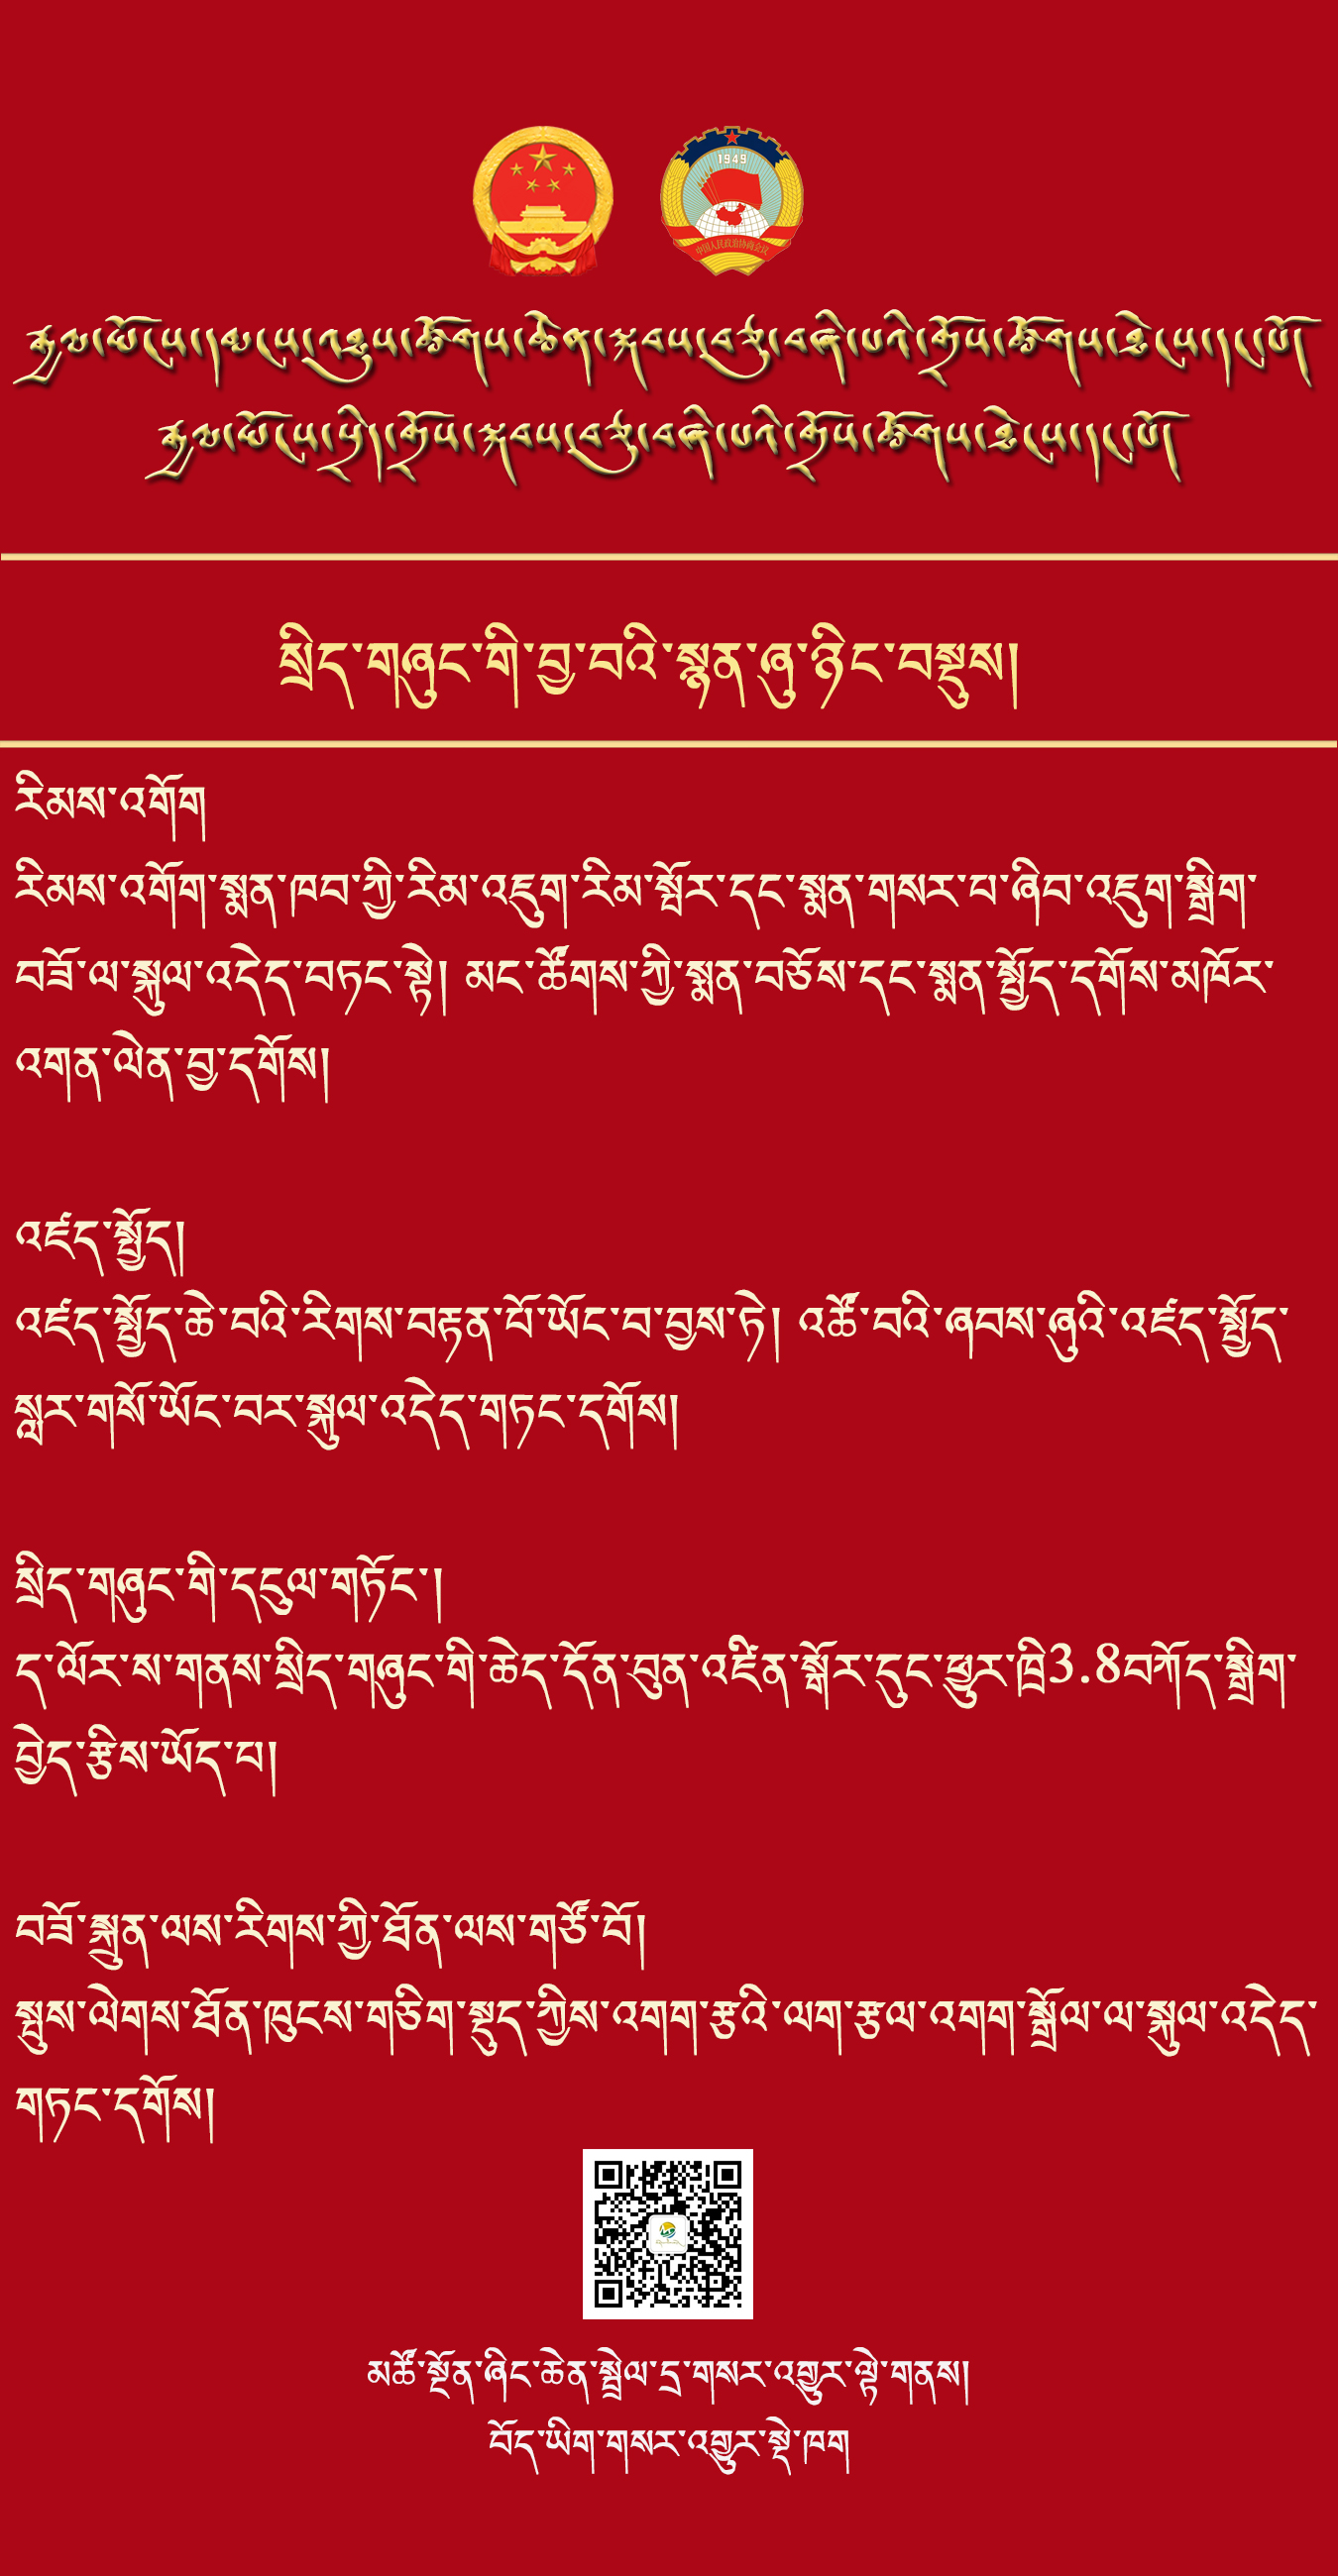 1949
中国人民政治协商会议
རྒྱལ་ཡོངས་དམངས་འཐུས་ཚོགས་ཆེན་སྐབས་བཅུ་བཞི་པའི་གྲོས་ཚོགས་ཐེངས་དང་པོ།
རྒྱལ་ཡོངས་སྲིད་གྲོས་སྐབས་བཅུ་བཞི་པའི་གྲོས་ཚོགས་ཐེངས་དང་པོ།
སྲིད་གཞུང་གི་བྱ་བའི་སྙན་ཞུ་ཉིང་བསྡུས།
རིམས་འགོག
རིམས་འགོག་སྨན་ཁབ་ཀྱི་རིམ་འཇུག་རིམ་སྤོར་དང་སྨན་གསར་པ་ཞིབ་འཇུག་སྒྲིག་
བཟོ་ལ་སྐུལ་འདེད་བཏང་སྟེ། མང་ཚོགས་ཀྱི་སྨན་བཅོས་དང་སྨན་སྤྱོད་དགོས་མཁོར་
འགན་ལེན་བྱ་དགོས།
འཛད་སྤྱོད།
འཛད་སྤྱོད་ཆེ་བའི་རིགས་བརྟན་པོ་ཡོང་བ་བྱས་ཏེ། འཚོ་བའི་ཞབས་ཞུའི་འཛད་སྤྱོད་
སླར་གསོ་ཡོང་བར་སྐུལ་འདེད་གཏང་དགོས།
སྲིད་གཞུང་གི་དངུལ་གཏོང་།
ད་ལོར་ས་གནས་སྲིད་གཞུང་གི་ཆེད་དོན་བུན་འཛིན་སྒོར་དུང་ཕྱུར་ཁྲི3.8བཀོད་སྒྲིག་
བྱེད་རྩིས་ཡོད་པ།
བཟོ་སྐྲུན་ལས་རིགས་ཀྱི་ཐོན་ལས་གཙོ་བོ།
སྤུས་ལེགས་ཐོན་ཁུངས་གཅིག་སྡུད་ཀྱིས་འགག་རྩའི་ལག་རྩལ་འགག་སྒྲོལ་ལ་སྐུལ་འདེད་
གཏང་དགོས།
མཚོ་སྔོན་ཞིང་ཆེན་སྦྲེལ་དྲ་གསར་འགྱུར་ལྟེ་གནས།
བོད་ཡིག་གསར་འགྱུར་སྡེ་ཁག